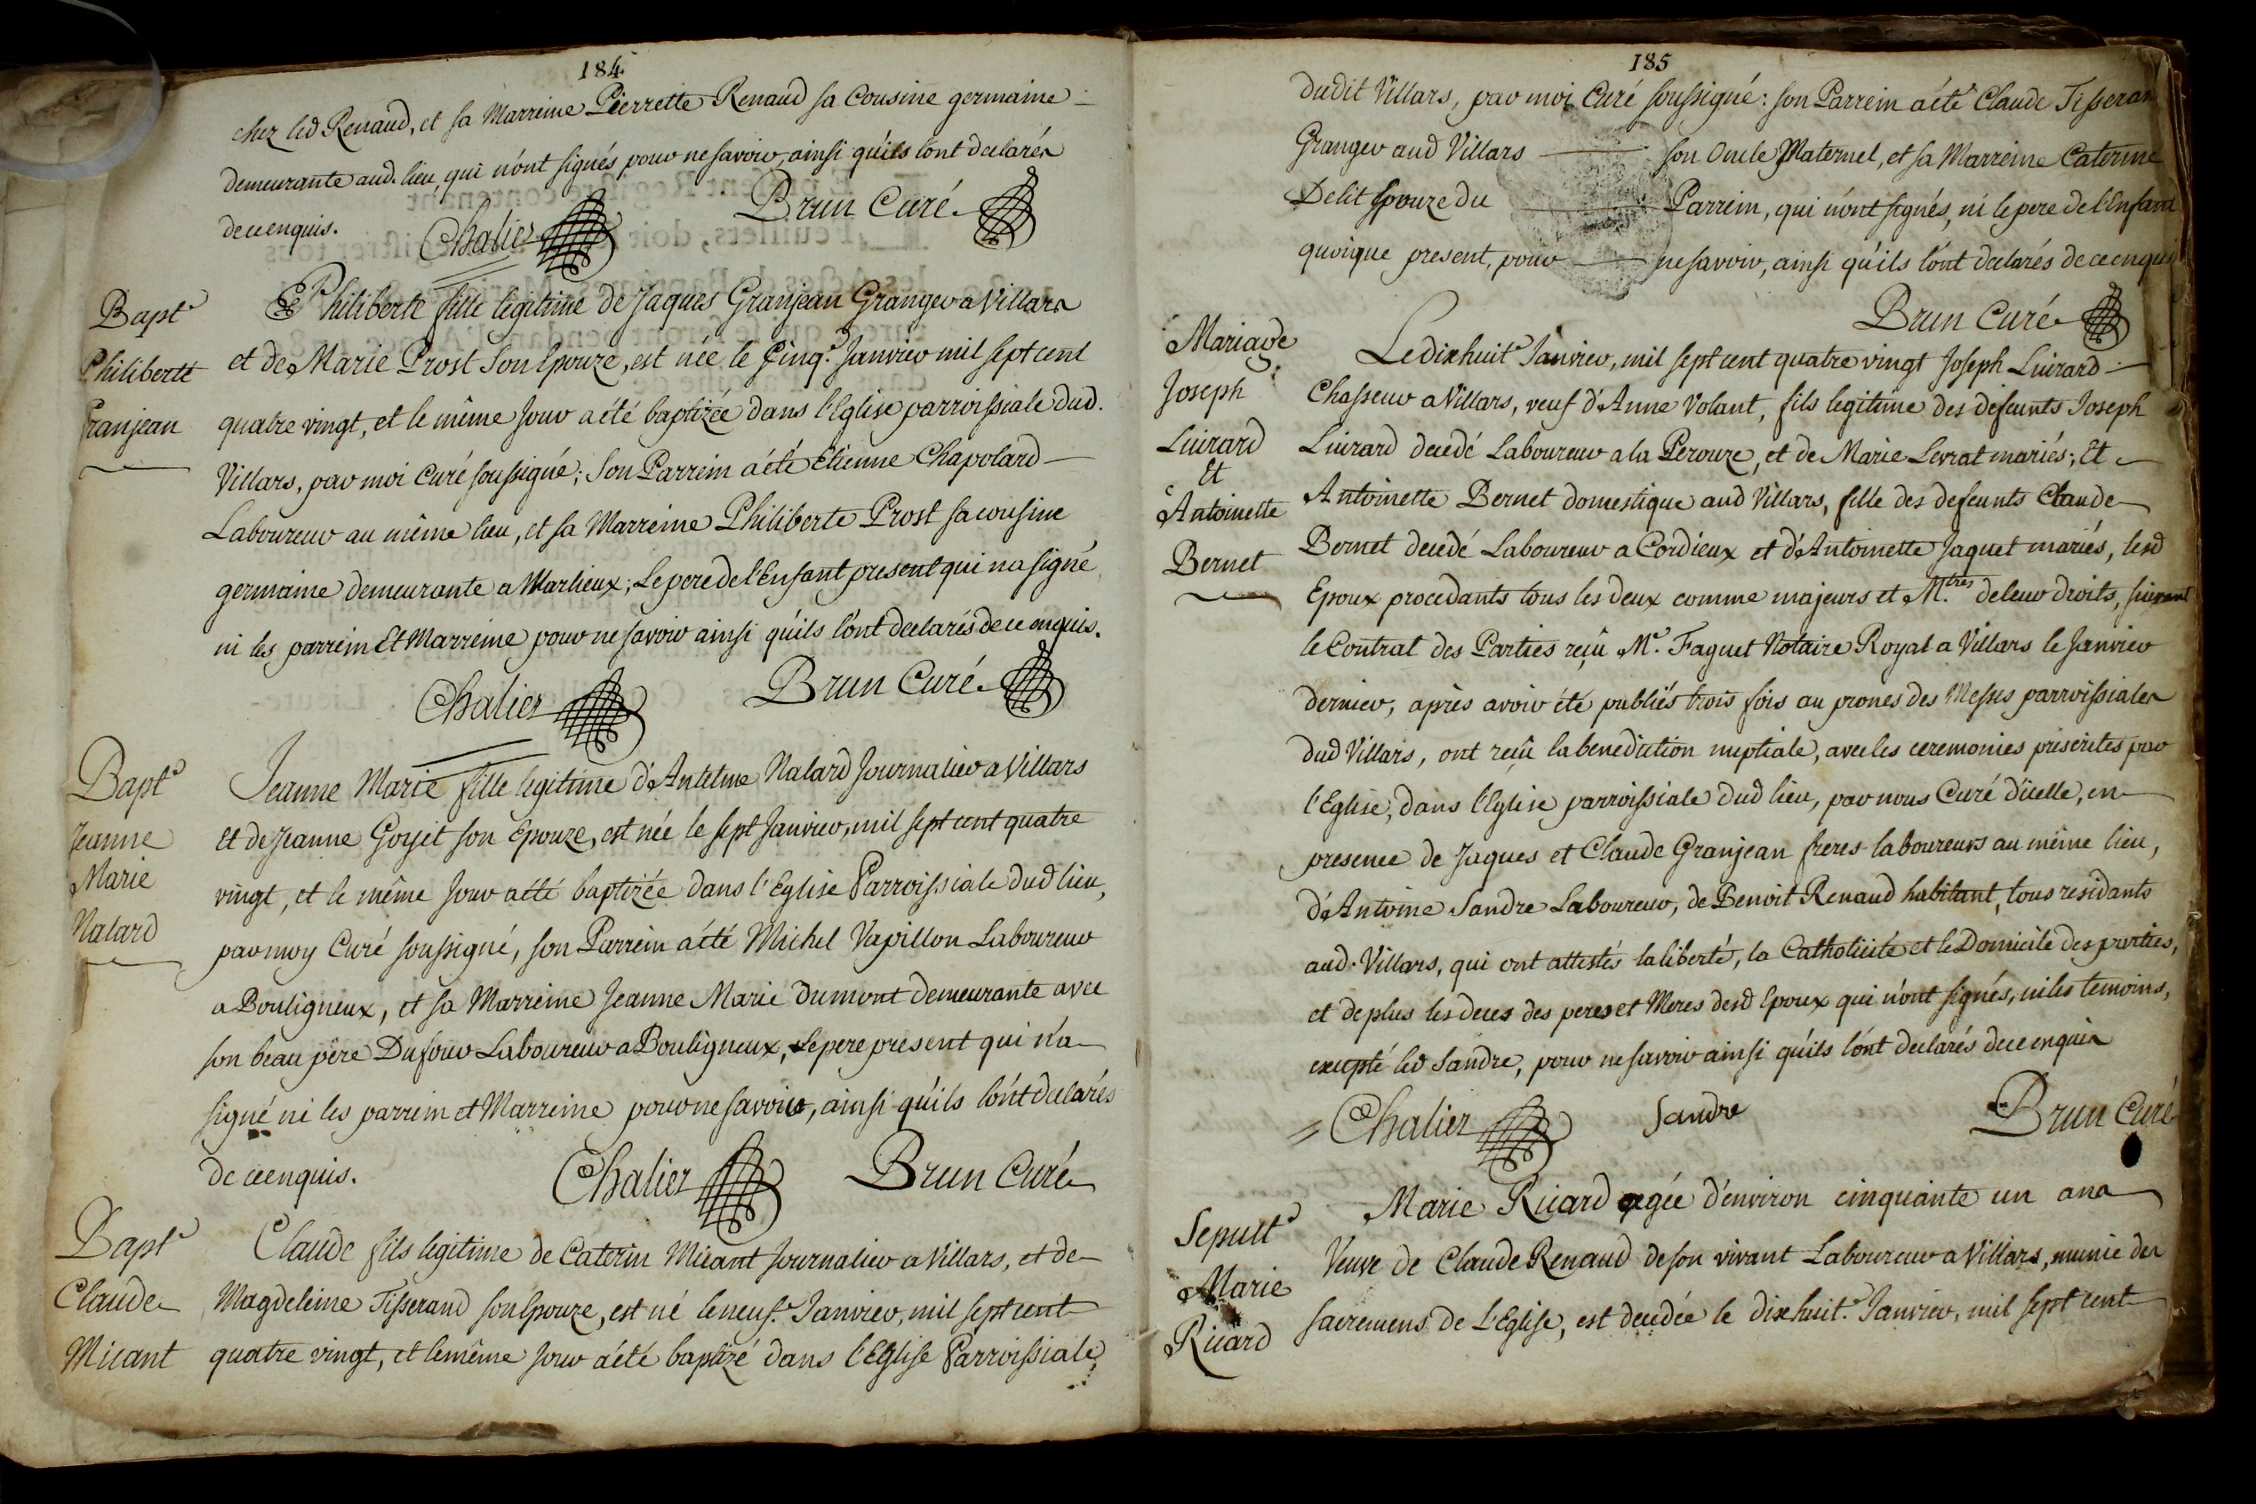 184
chez led Renaud, et sa Marreine Pierrette Renaud sa Cousine germaine
demeurante aud. lieu, qui n'ont signés pour ne savoir, ainsi qu'ils l'ont declarés
de ce enquis.
Chalier Brun Curé
Bapt.e
Philiberte
Granjean
Philiberte fille legitime de Jaques Granjean Granger a Villars
et de Marie Prost son Epouze, est née le Cinq.e Janvier mil sept cent
quatre vingt, et le même jour a été baptizée dans l'Eglise parroissiale dud.
Villars, par moi Curé soussigné; son Parrein a été Etienne Chapolard
Laboureur au même lieu, et sa Marreine Philiberte Prost sa cousine
germaine demeurante a Marlieux; Le pere de l'Enfant present qui n'a signé
ni les parrein Et Marreine pour ne savoir ainsi qu'ils l'ont declarés de ce enquis.
Chalier Brun Curé
Bapt.e
Jeanne
Marie
Nalard
Jeanne Marie fille legitime d'Antelme Nalard Journalier a Villars
et de Jeanne Goyet son Epouze, est née le sept Janvier, mil sept cent quatre
vingt, et le même jour a été baptizée dans l'Eglise Parroissiale dud lieu,
par moy Curé soussigné, son Parrein a été Michel Vapillon Laboureur
a Bouligneux, et sa Marreine Jeanne Marie Dumont demeurante avec
son beau père Dufour Laboureur a Bouligneux, Le pere present qui n'a
signé ni les parrein et Marreine pour ne savoir, ainsi qu'ils l'ont declarés
de ce enquis.
Chalier Brun Curé
Bapt.e
Claude
Micant
Claude fils legitime de Caterin Micant Journalier a Villars, et de
Magdeleine Tisserand son Epouze, est né le neuf.e Janvier, mil sept cent
quatre vingt, et le même jour a été baptizé dans l'Eglise Parroissiale
185
dudit Villars, par moi Curé soussigné: son Parrein a été Claude Tisseran
Granger aud Villars son Oncle Maternel, et sa Marreine Caterine
Delit Epouze du Parrein, qui n'ont signés, ni le pere de l'Enfant
quoique present, pour ne savoir, ainsi qu'ils l'ont declarés de ce enquis
Brun Curé
Mariage
Joseph
Luirard
Et
Antoinette
Bernet
Le dix huit.e Janvier, mil sept cent quatre vingt Joseph Luirard
Chasseur a Villars, veuf d'Anne Volant, fils legitime des defeunts Joseph
Luirard decedé Laboureur a la Perouze, et de Marie Levrat mariés; Et
Antoinette Bernet domestique aud Villars, fille des defeunts Claude
Bernet decedé Laboureur a Cordieux et d'Antoinette Jaquet mariés, lesd
Epoux procedants tous les deux comme majeurs et M.tres de leur droits, suivant
le Contrat des Parties reçû M.e Faguet Notaire Royal a Villars le Janvier
dernier, après avoir été publiés trois fois au prones des Messes parroissiales
dud Villars, ont reçû la benediction nuptiale, avec les ceremonies prescrites par
l'Eglise, dans l'Eglise parroissiale dud lieu, par nous Curé d'icelle, en
presence de Jaques et Claude Granjean freres laboureurs au même lieu,
d'Antoine Sandre Laboureur, de Benoit Renaud habitant, tous residants
aud. Villars, qui ont attestés la liberté, la Catholicité et le Domicile des parties,
et de plus les deces des peres et Meres desd Epoux qui n'ont signés, ni les temoins,
excepté led Sandre, pour ne savoir ainsi qu'ils l'ont declarés de ce enquis
Chalier Sandre Brun Curé
Sepult.e
Marie
Ricard
Marie Ricard agée d'environ cinquante un ans
Veuve de Claude Renaud de son vivant Laboureur a Villars, munie des
sacremens de L'Eglise, est decedée le dix huit.e Janvier, mil sept cent